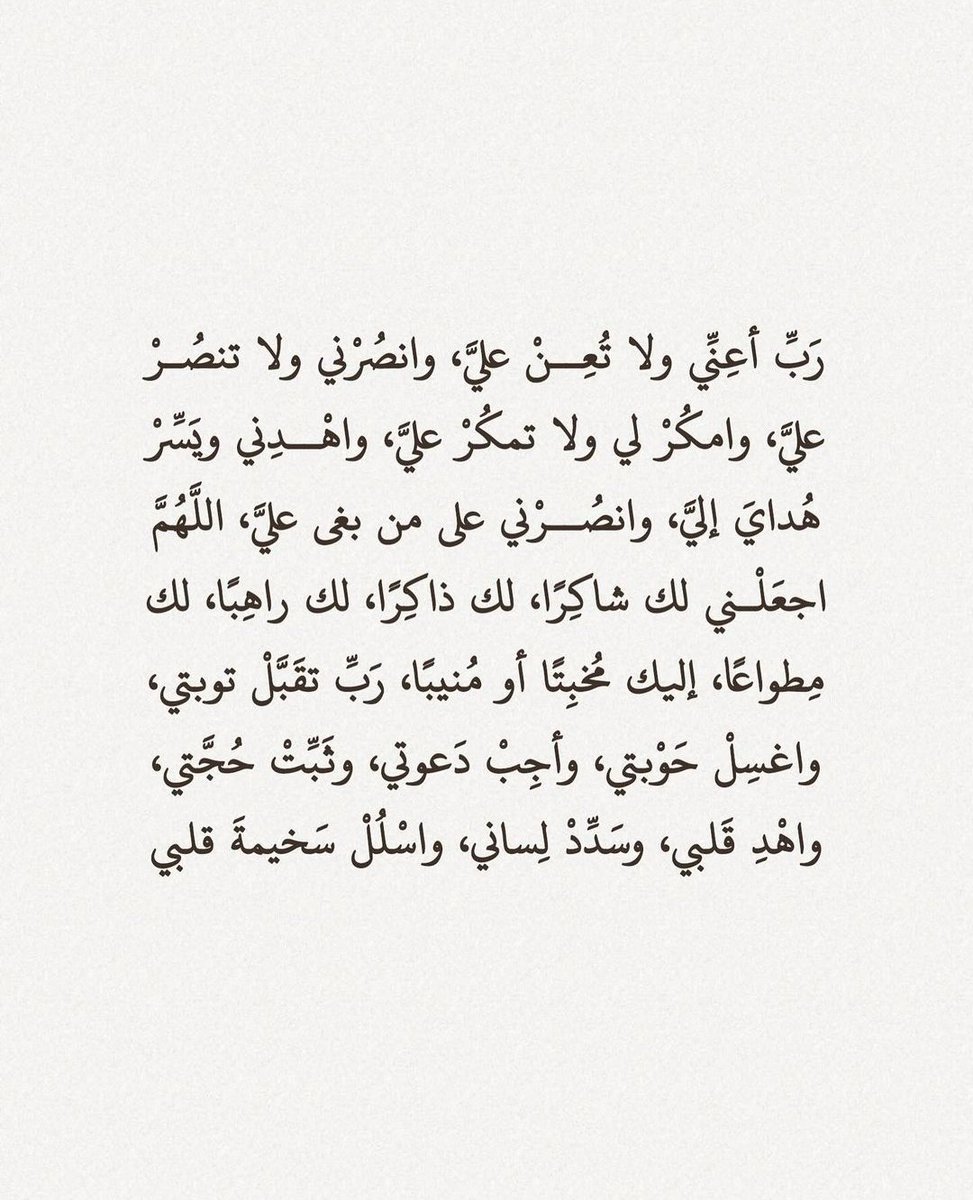 رَبِّ أعِنِّي ولا تُعِــنْ عليَّ، وانصُرْني ولا تنصُــرْ
عليَّ، وامكُرْ لي ولا تمكُرْ عليَّ، واهْــدِني ويَسِّرْ
هُدايَ إليَّ، وانصُــرْني على من بغى عليَّ، اللَّهُمَّ
اجعَلْــني لك شاكِرًا، لك ذاكِرًا، لك راهِبًا، لك
مِطواعًا، إليك مُخبِتًا أو مُنيبًا، رَبِّ تقَبَّلْ توبتي،
واغسِلْ حَوْبتي، وأجِبْ دَعوتي، وثَبِّتْ حُجَّتي،
واهْدِ قَلبي، وسَدِّدْ لِساني، واسْلُلْ سَخيمةَ قلبي